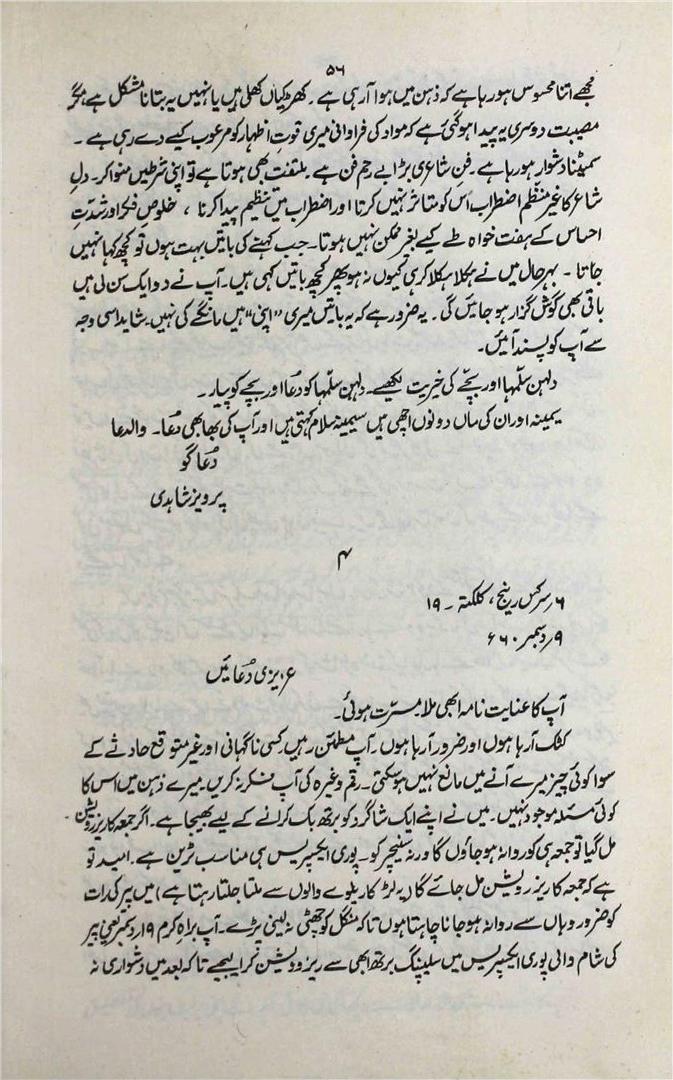 ۵۶
مجھے اتنا محسوس ہو رہا ہے کہ ذہن میں ہوا آ رہی ہے ۔ کھڑکیاں کھلی ہیں یا نہیں یہ بتانا مشکل ہے، مگر
مصیبت دوسری یہ پیدا ہو گئی ہے کہ مواد کی فراوانی میری قوتِ اظہار کو مرعوب کیے دے رہی ہے ۔
سمیٹنا دشوار ہو رہا ہے ۔ فنِ شاعری بڑا بے رحم فن ہے ۔ ملتفت بھی ہوتا ہے تو اپنی شرطیں منوا کر ۔ دلِ
شاعر کا غیر منظم اضطراب اُس کو متاثر نہیں کرتا اور اضطراب میں تنظیم پیدا کرنا ، خلوصِ فکر اور شدّتِ
احساس کے ہفت خواہ طے کیے بغیر ممکن نہیں ہوتا ۔ جب کہنے کی باتیں بہت ہوں تو کچھ کہا نہیں
جاتا ۔ بہر حال میں نے ہکلا ہکلا کر ہی کیوں نہ ہو پھر کچھ باتیں کہی ہیں ۔ آپ نے دو ایک سن لی ہیں
باقی بھی گوش گزار ہو جائیں گی ۔ یہ ضرور ہے کہ یہ باتیں میری "اپنی" ہیں مانگے کی نہیں ۔ شاید اسی وجہ
سے آپ کو پسند آئیں ۔
دلہن سلمہا اور بچّے کی خیریت لکھیے ۔ دلہن سلّمہا کو دعا اور بچے کو پیار ۔
یمینہ اور ان کی ماں دونوں اچھی ہیں سیمینہ سلام کہتی ہیں اور آپ کی بھابھی دُعا ۔ والدعا
دُعا گو
پرویز شاہدی
۴
۶ ؍ سرکس رینج ، کلکتہ ۔ ۱۹
۹ ؍ دسمبر ۶۶۰
عزیزی دُعائیں
آپ کا عنایت نامہ ابھی ملا مسرّت ہوئی ۔
کٹک آ رہا ہوں اور ضرور آ رہا ہوں ۔ آپ مطمئن رہیں کسی ناگہانی اور غیر متوقع حادثے کے
سوا کوئی چیز میرے آنے میں مانع نہیں ہو سکتی ۔ رقم وغیرہ کی آپ فکر نہ کریں ۔ میرے ذہن میں اس کا
کوئی مسئلہ موجود نہیں ۔ میں نے اپنے ایک شاگرد کو برتھ بک کرانے کے لیے بھیجا ہے ۔ اگر جمعہ کا ریزرویشن
مل گیا تو جمعہ ہی کو روانہ ہو جاؤں گا ورنہ سنیچر کو ۔ پوری ایکسپریس ہی مناسب ٹرین ہے ۔ امید تو
ہے کہ جمعہ کا ریزرویشن مل جائے گا (یہ لڑکا ریلوے والوں سے ملتا جلتا رہتا ہے) میں پیر کی رات
کو ضرور وہاں سے روانہ ہو جانا چاہتا ہوں تاکہ منگل کو چھٹی نہ لینی پڑے ۔ آپ براہِ کرم ۱۹ ؍ دسمبر یعنی پیر
کی شام والی پوری ایکسپریس میں سلیپنگ برتھ ابھی سے ریزرویشن کرا لیجیے تاکہ بعد میں دشواری نہ